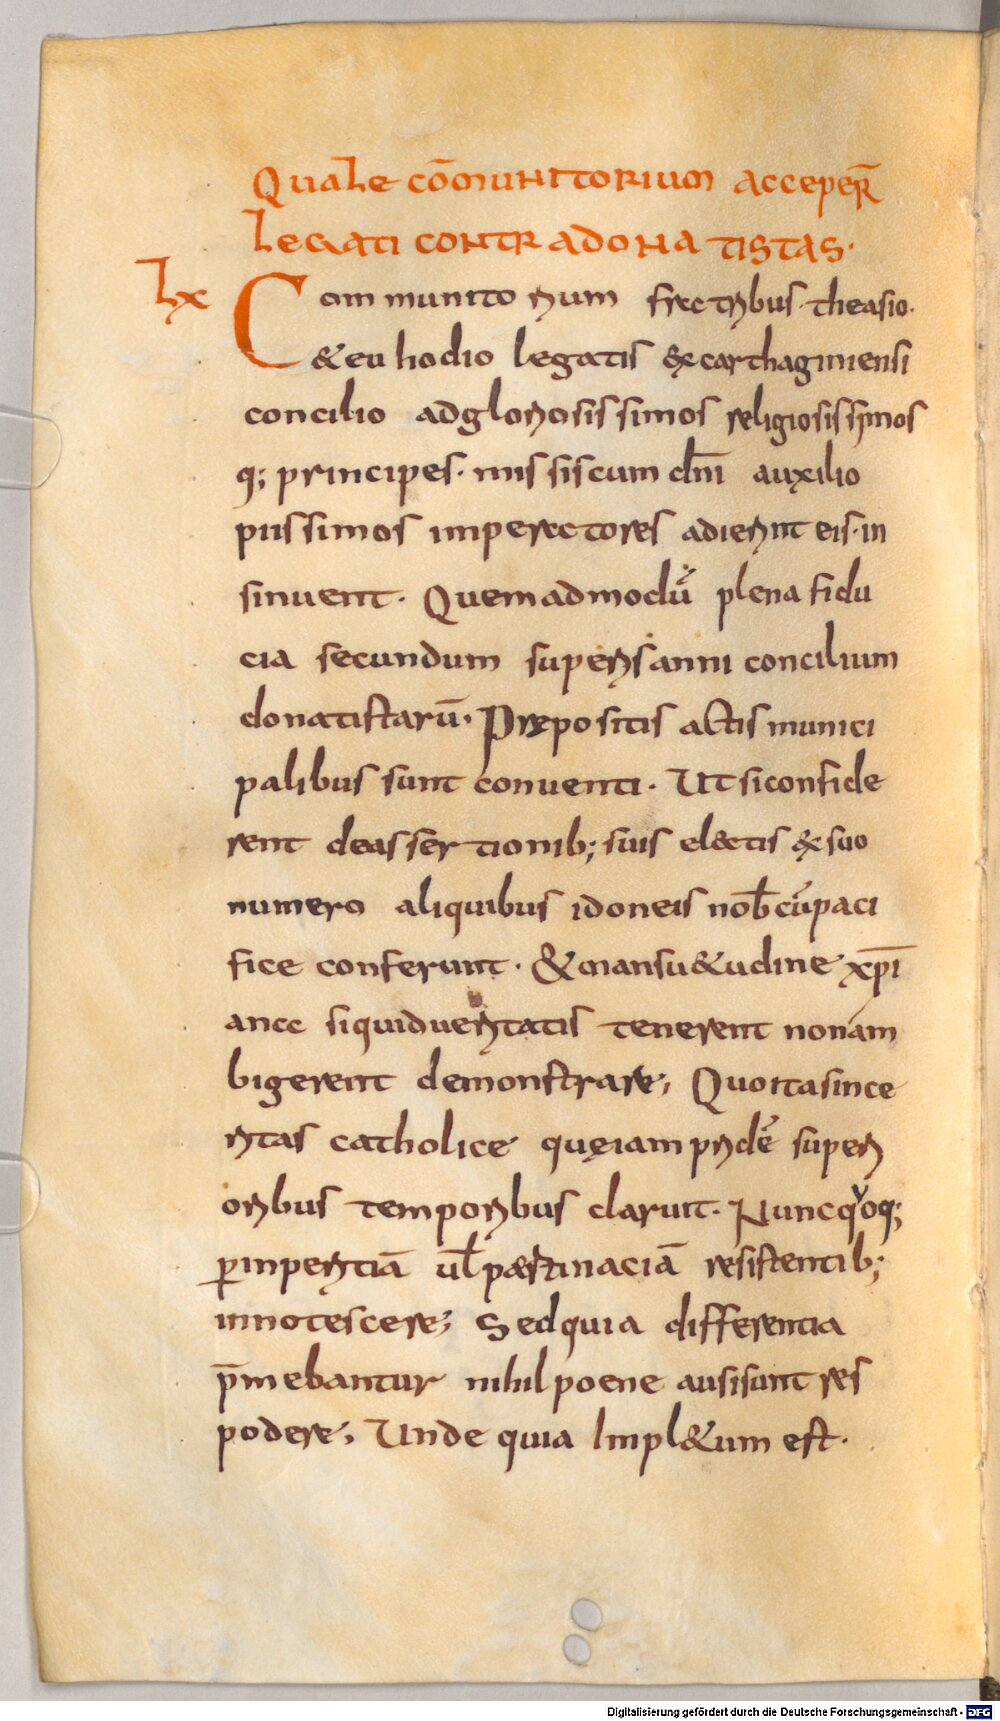 Quale cōmunitorium acceper̄
legati contradonatistas·
Lx Commonitorium fratribus· theasio·
& euhodio legatis ex carthaginiensi
concilio adgloriosissimos religiosissimos
q; principes· missiscum dn̄i auxilio
piissimos imperatores adierint eis· in
sinuent· Quemadmodū plena fidu
cia secundum superis anni concilium
donatistarū· Prępositis actis munici
palibus sunt conuenti· Ut siconfide
rent deassertionib; suis el&ctis & suo
numero aliquibus idoneis nob̄cūpaci
fice conferunt· & mansu&udine xp̄i
ana siquidueritatis tenerent nonam
bigerent demonstrare; Quo ita since
ritas catholice quęiam pridē superi
oribus temporibus claruit· Nuncquoq;
ꝑinperitiā ul̄ pæstinaciā resistentib;
innotescere; Sedquia differentia
p̄mebantur nihil poene ausisunt res
podere; Unde quia Impl&um est·
Digitalisierung gefördert durch die Deutsche Forschungsgemeinschaft - DFG